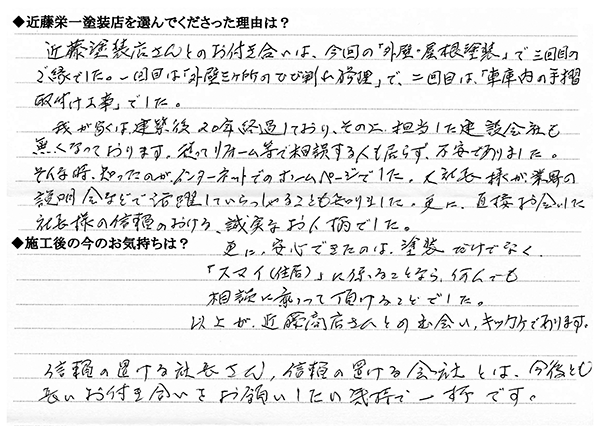 ◆近藤栄一塗装店を選んでくださった理由は？
近藤塗装店さんとのお付き合いは、今回の「外壁・屋根塗装」で三回目の
ご縁でした。一回目は「外壁三ヶ所のひび割れ修理」で、二回目は「車庫内の手摺
取付け工事」でした。
我が家は建築後20年経過しており、その上、担当した建設会社も
無くなっております。従ってリフォーム等で相談する人も居らず、不安でありました。
そんな時、知ったのがインターネットでのホームページでした。社長様が業界の
説明会などで活躍していらっしゃることも知りました。更に、直接お会いした
社長様の信頼のおける、誠実なお人柄でした。
◆施工後の今のお気持ちは？
更に、安心できたのは、塗装だけでなく、
「スマイ(住居)」に係ることなら、何んでも
相談に乗って頂けることでした。
以上が、近藤商店さんとの出会い、キッカケであります。
信頼の置ける社長さん、信頼の置ける会社とは、今後とも
長いお付き合いをお願いしたい気持で一杯です。